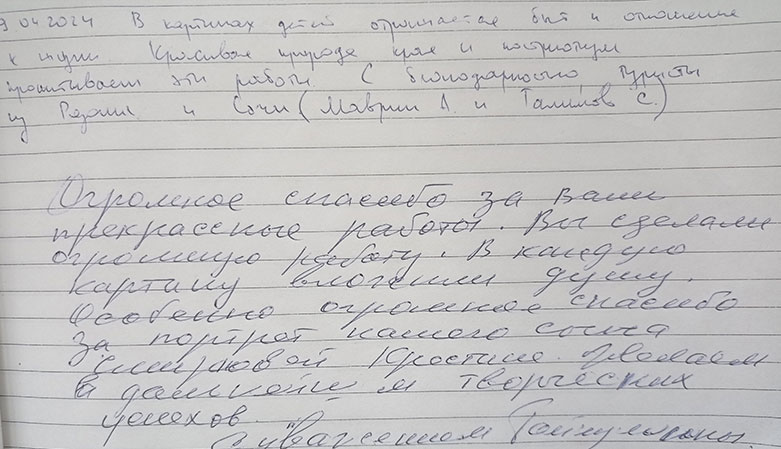 9.04.2024 В картинах детей отражается быт и отношение
к жизни. Красивая природа края и
эти работы. С благодарностью туристы
из Рязани и Сочи (Маврин А. и С.)
Огромное спасибо за Ваши
прекрассные работы. Вы сделали
огромную работу. В каждую
картину вложили душу.
Особенно огромное спасибо
за портрет нашего сынка
Желаем
в дальнейшем творческих
успехов.
с уважением